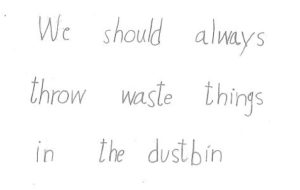 We should always
throw waste things
in the dustbin